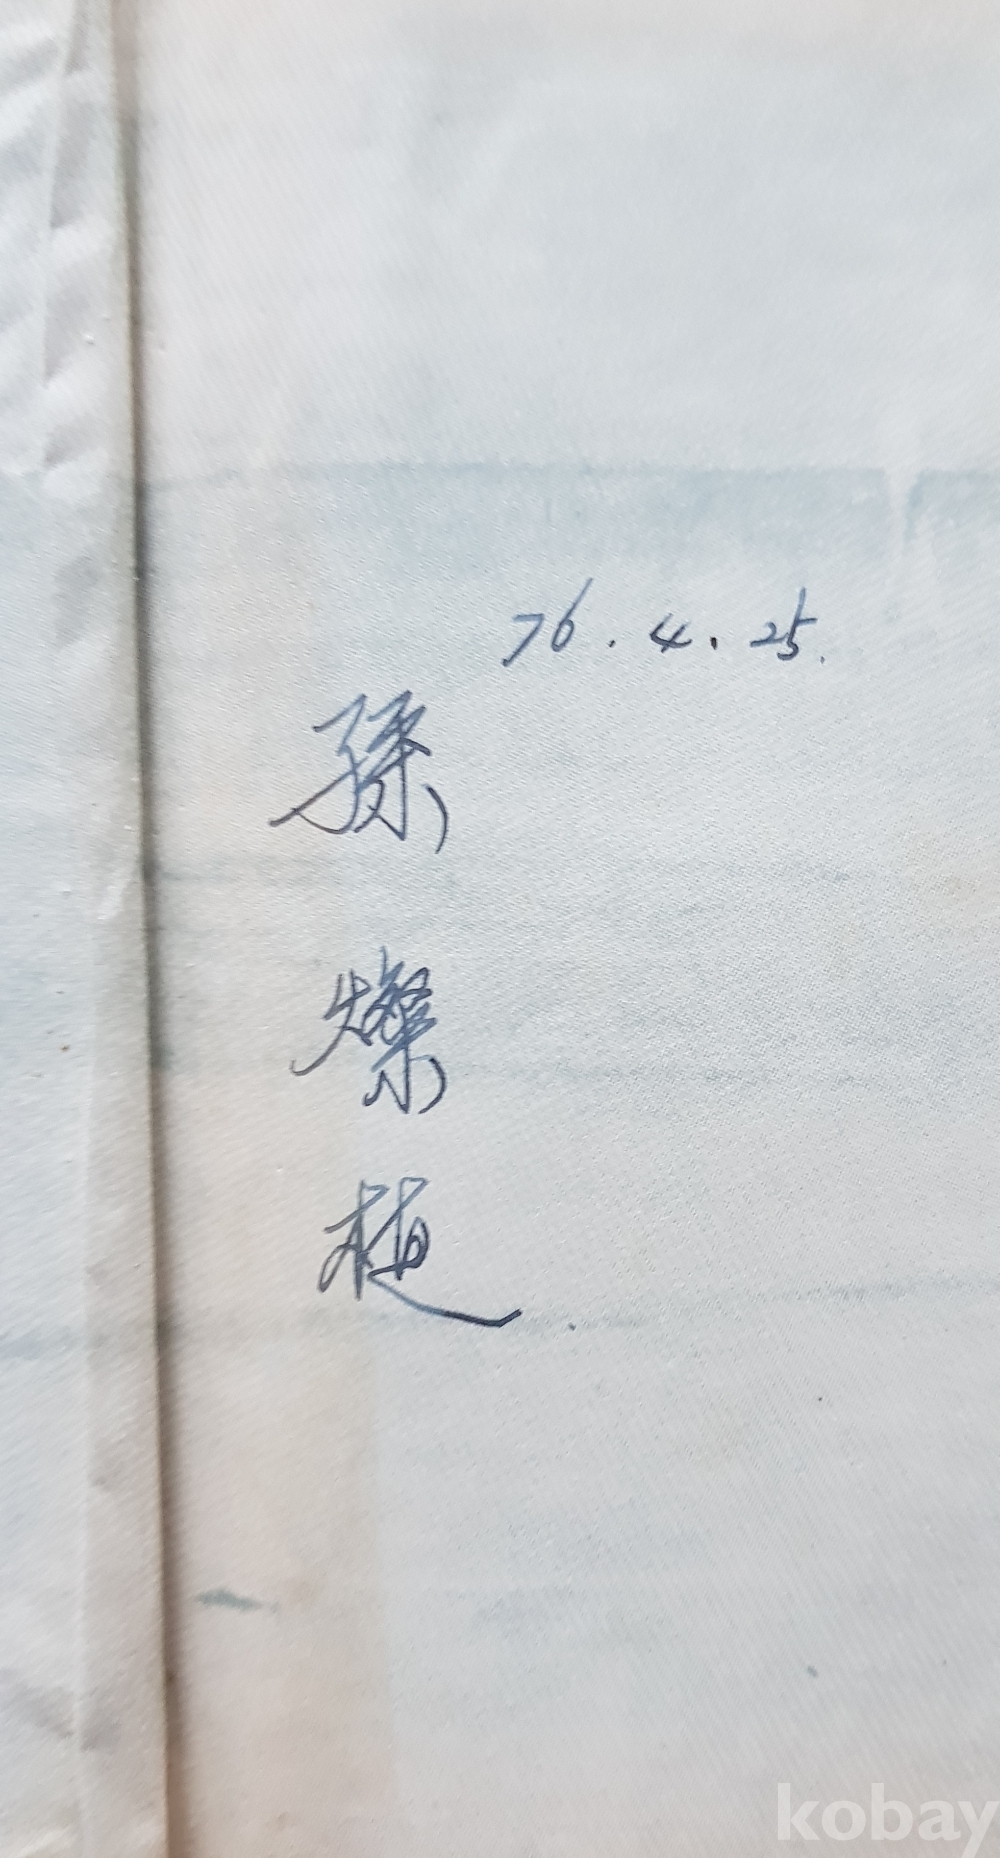 76.4.25.
孫
燦
植
kobay